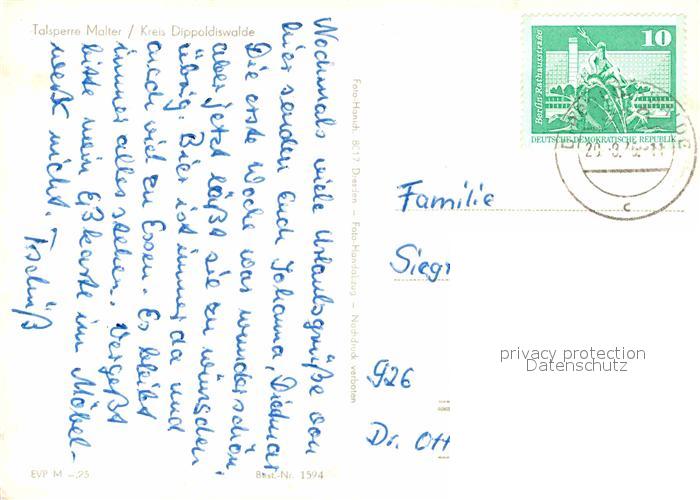 Talsperre Malter / Kreis Dippoldiswalde
Nochmals viele Urlaubsgrüße von
hier senden Euch Johanna, Dietmar
Die erste Woche war wunderschön,
aber jetzt läßt sie zu wünschen
übrig. Bier ist immer da und
auch viel zu Essen. Es bleibt
immer alles stehen. Vergeßt
bitte mein Eßkarte im Möbel-
werk nicht. Tschüß
EVP M –,25
Best.-Nr. 1594
Foto-Hanich, 8017 Dresden – Foto-Handabzug – Nachdruck verboten
10
Berlin-Rathausstraße
DEUTSCHE DEMOKRATISCHE REPUBLIK
c
Familie
Siegr
926
Dr. Ott
privacy protection
Datenschutz